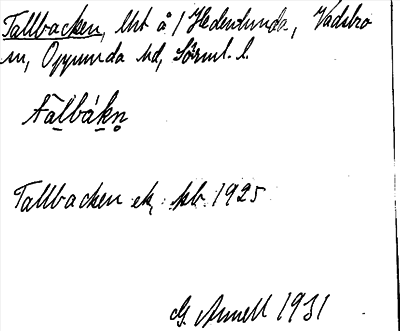 Tallbacken, lht å 1 Hedenlunda, Vadsbro
sn, Oppunda hd, Sörml. l.
tålbákn
Tallbacken ek, kb 1925
G. Annell 1931